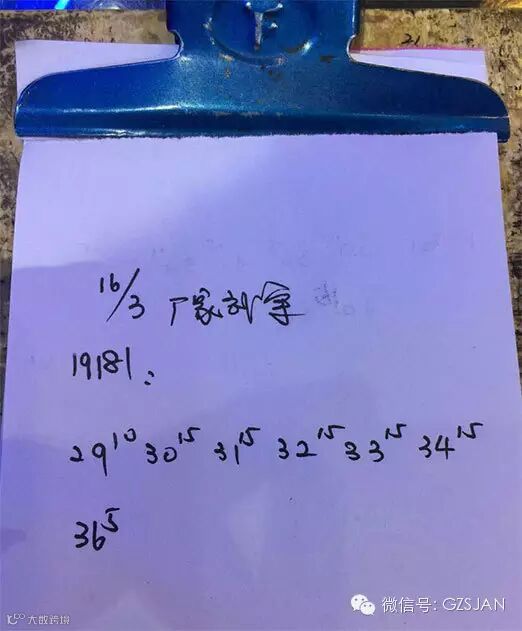 16/3 厂家刘军
19181:
29¹⁰ 30¹⁵ 31¹⁵ 32¹⁵ 33¹⁵ 34¹⁵
36⁵
微信号: GZSJAN
大数跨境